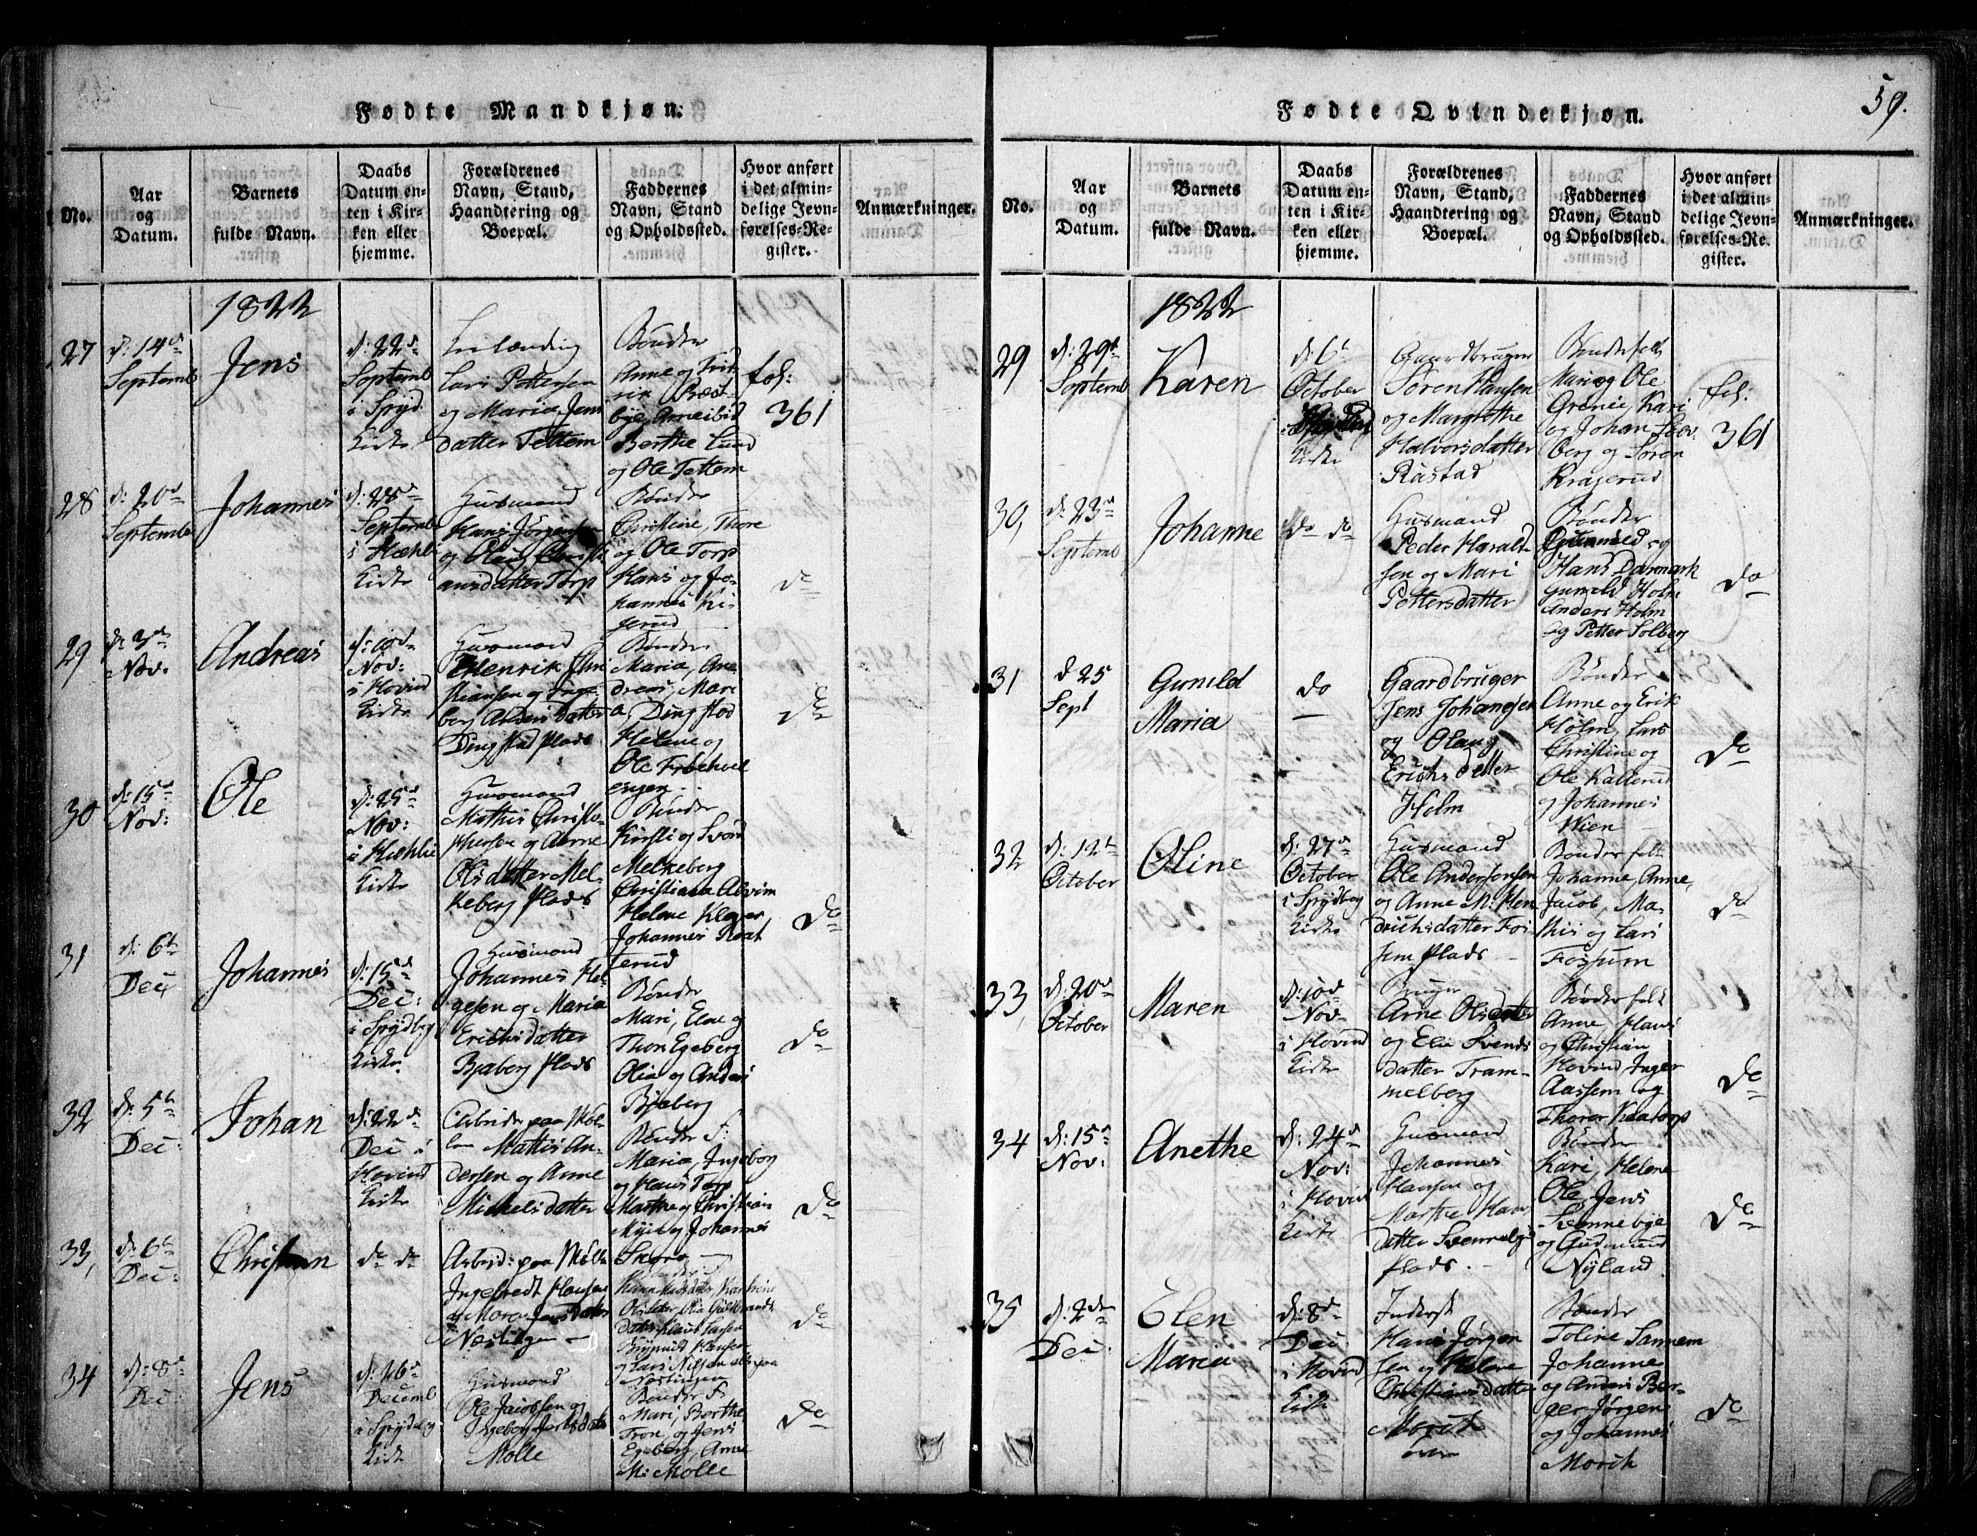 59.
Fødte Mandkjøn.
No.
Aar
og
Datum.
Barnets
fulde Navn.
Daabs
Datum en-
ten i Kir-
ken eller
hjemme.
Forældrenes
Navn, Stand,
Haandtering og
Boepæl.
Faddernes
Navn, Stand
og Opholdssted.
Hvor anført
i det almin-
delige Jevn-
førelses-Re-
gister.
Anmærkninger.
1822
27
d: 14d
Septemb
Jens
d: 22d
Septemb
i Spyd.
Kirke
Lars Pettersen
og Maria Jens
datter Tettem
Bønder
Anne og
Berthe Lund
og Ole Tettem
fol:
361
28
d: 20d
Septemb
Johannes
d: 25d
Septemb
i Hæhli
Kirke
Husmand
Hans Jørgensen
og Olea Christi
ansdatter Torp
Bønder
Christine, Thore
og Ole Torp
Hans og Jo-
hannes Ki-
serud
do
29
d: 3de
Nov:
Andreas
d: 10d
Nov:
i Hovind
Kirke
Husmand
Henrik Chri
stiansen og Inge
berg Anders datter
Dingstad plads
Bønder
Maria, An-
dreas, Mari
a Dingstad
Helene og
Ole
engen
do
30
d: 15d
Nov:
Ole
d: 25d
Nov:
i Hæhlie
Kirke
Husmand
Mathis Christo-
phersen og Anne
Olsdatter Mel-
leberg plads
Bønder
Kirsti og
Melleberg
Christiana Alvim
Helene Kloper,
Johannes
terud
do
31
d: 6t
Dec
Johannes
d: 15d
Dec:
i Spydberg
Kirke
Husmand
Johannes Hel-
gesen og Maria
Erichsdatter
Bjaberg plads
Bønder
Mari, Else og
Thon Egeberg
Olia og Anders
Bjaberg
do
32
d: 5t
Dec:
Johan
d: 22d
Dec: i
Hovind
Kirke
Arbeider paa Mol-
len Mathis An-
dersen og Anne
Michelsdatter
Bønder f:
Maria, Ingeborg
og Hans Torp
Marthe og Christian
Myie og Johannes
do
33,
d: 6t
Dec:
Christian
do do
Arbeid: paa Mölle
Ingebredt Hansen
og Maren
i Næstingen
og Lars Nilsen alle paa
Næstingen
do
34
d: 8d
Dec:
Jens
d: 26d
Decemb
i Spydberg
Kirke
Husmand
Ole Jacobsen og
Ingeborg
Mölle
Bønder f:
Mari, Berthe
Tron, og Jens
Egeberg, Anne
M: Mölle
do
Fødte Qvindekjøn.
No.
Aar
og
Datum.
Barnets
fulde Navn.
Daabs
Datum en-
ten i Kir-
ken eller
hjemme.
Forældrenes
Navn, Stand,
Haandtering og
Boepæl.
Faddernes
Navn, Stand
og Opholdssted.
Hvor anført
i det almin-
delige Jevn-
førelses-Re-
gister.
Anmærkninger.
1822
29
d: 29t
Septemb
Karen
d: 6t
October
Kirke
Gaardbruger
Søren Hansen
og Margrethe
Halvorsdatter
Råstad
Bønderfolk
Mari og Ole
Grönie, Kari
og Johan
berg og Søren
Kragerud
fol:
361
30,
d: 23d
Septemb
Johanne
do do
Husmand
Peder Harald
sen og Mari
Pettersdatter
Bønder
Hans Danmark
Gunild Holm
Anders Holm
og Petter Solberg
do
31
d 25
Sept
Gunild
Maria
do
Gaardbruger
Jens Johansen
og Olaug
Erichsdatter
Holm
Bønder
Anne og Erik
Holm, Lars
Christine og
Ole Kallerud
og Johannes
Wien
do
32
d: 12t
October
Oline
d: 27d
October
i Spydberg
Kirke
Husmand
Ole Andersensen
og Anne M: Hen
drichsdatter Fos
sum plads
Bønder folk
Johanne, Anne,
Jacob, Ma-
this og Lars
Fossum
do
33,
d: 20d
October
Maren
d: 10d
Nov:
i Hovind
Kirke
Bruger
Arne Olsen
og Elie Svends
datter Tram-
melberg
Bønder folk
Anne Hans
og Christian
Hovind, Inger
Aassem og
Thorer Kaatorp
do
34
d: 15d
Nov:
Anethe
d: 24d
Nov:
i Hovind
Kirke
Husmand
Johannes
Hansen og
Marthe Hans
datter Svennebye
plads
Bønder
Kari, Helene
Ole, Jens
Svennebye
og Gudmund
Nyland
do
35
d: 2den
Dec:
Elen
Maria
d: 8d
Dec
i Hovind
Kirke
Inderst
Hans Jørgen
sen og Helene
Christiansdatter
Morik
Bønder
Toline Sannem
Johanne
og Anders Ber-
ger Jørgen
og Johannes
Morik
do